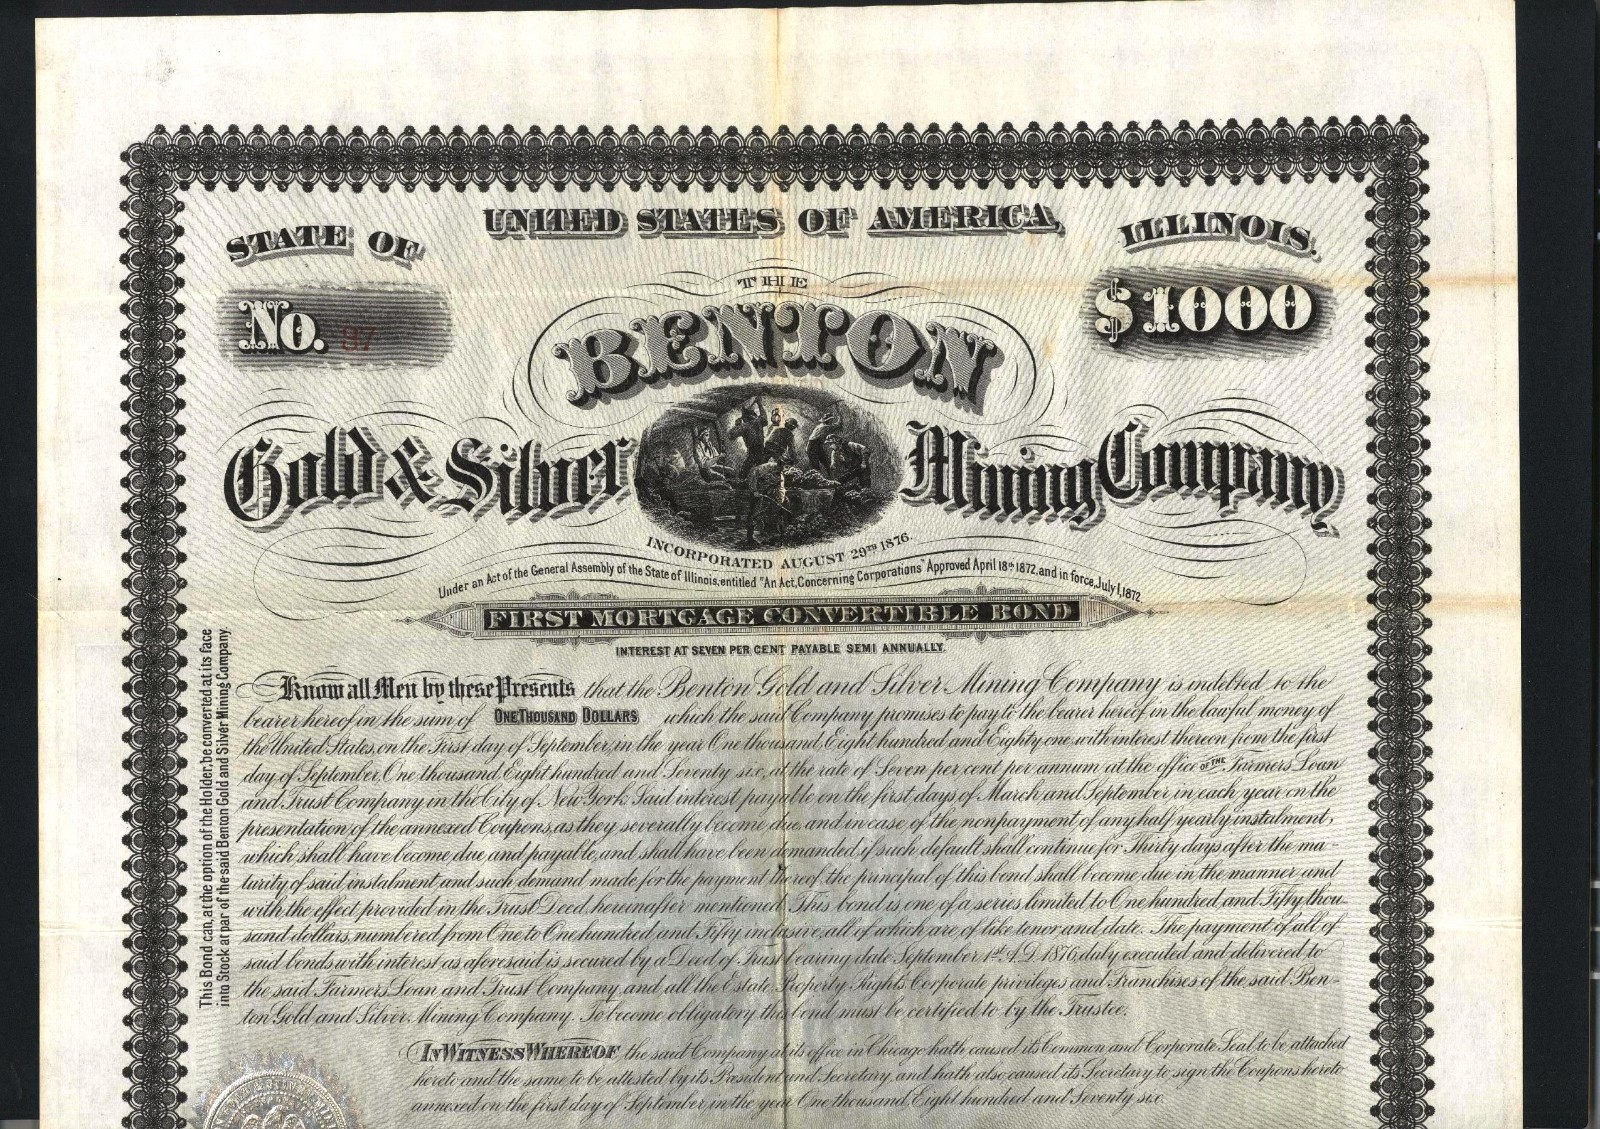 UNITED STATES OF AMERICA,
STATE OF
ILLINOIS.
No. 37
$1000
THE
BENTON
Gold & Silver Mining Company
INCORPORATED AUGUST 29TH 1876.
Under an Act of the General Assembly of the State of Illinois, entitled "An Act, Concerning Corporations" Approved April 18th 1872, and in force, July 1, 1872.
FIRST MORTGAGE CONVERTIBLE BOND
INTEREST AT SEVEN PER CENT PAYABLE SEMI ANNUALLY.
This Bond can, at the option of the Holder, be converted at its face
into Stock at par of the said Benton Gold and Silver Mining Company.
Know all Men by these Presents that the Benton Gold and Silver Mining Company is indebted to the
bearer hereof in the sum of ONE THOUSAND DOLLARS which the said Company promises to pay to the bearer hereof in the lawful money of
the United States, on the First day of September, in the year One thousand, Eight hundred and Eighty one with interest thereon from the first
day of September, One thousand Eight hundred and Seventy six, at the rate of Seven per cent per annum at the office OF THE Farmers Loan
and Trust Company in the City of New York. Said interest payable on the first days of March and September in each year, on the
presentation of the annexed Coupons, as they severally become due, and in case of the nonpayment of any half yearly instalment,
which shall have become due and payable, and shall have been demanded, if such default shall continue for Thirty days after the ma-
turity of said instalment and such demand made for the payment thereof, the principal of this bond shall become due in the manner and
with the effect provided in the Trust Deed, hereinafter mentioned. This bond is one of a series limited to One hundred and Fifty thou-
sand dollars, numbered from One to One hundred and Fifty inclusive, all of which are of like tenor and date. The payment of all of
said bonds with interest as aforesaid is secured by a Deed of Trust bearing date September 1st A.D. 1876, duly executed and delivered to
the said Farmers Loan and Trust Company, and all the Estate, Property, Rights, Corporate privileges and Franchises of the said Ben-
ton Gold and Silver Mining Company. To become obligatory this bond must be certified to by the Trustee.
IN WITNESS WHEREOF the said Company at its office in Chicago hath caused its Common and Corporate Seal to be attached
hereto and the same to be attested by its President and Secretary, and hath also caused its Secretary to sign the Coupons hereto
annexed on the first day of September in the year One thousand Eight hundred and Seventy six.